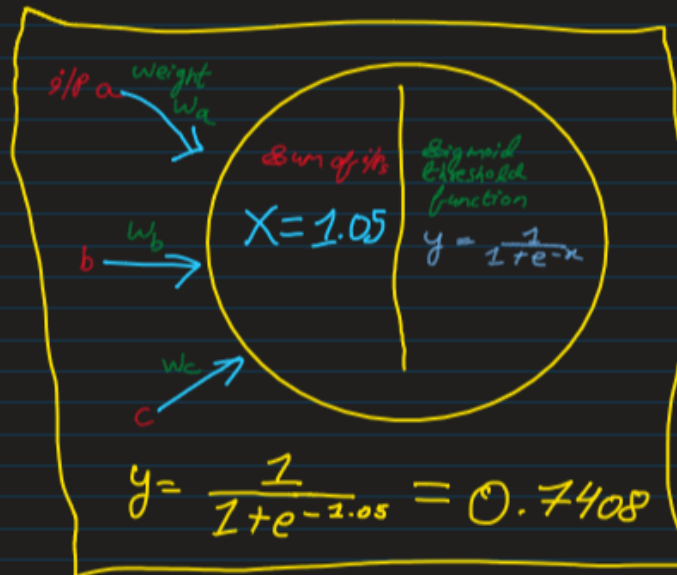 i/P a
weight
Wa
Sum of i/Ps
X = 1.05
Sigmoid
threshold
function
y = 1/1+e^-x
b
Wb
Wc
c
y = 1/1+e^-1.05 = 0.7408